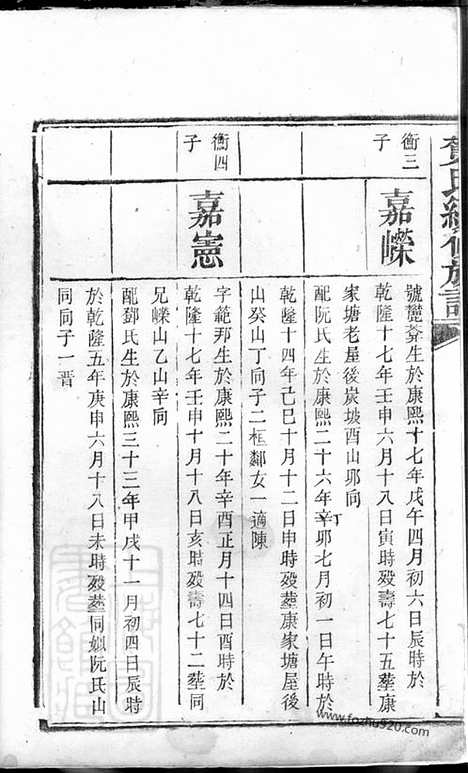 賀氏續修族譜
衡三
子
嘉嶸
號巒葊生於康熙十七年戊午四月初六日辰時於
乾隆十七年壬申六月十八日寅時歿壽七十五葬康
家塘老屋後炭坡酉山卯向
配阮氏生於康熙二十六年辛卯七月初一日午時於
丁
乾隆十四年己巳十月十二日申時歿葬康家塘屋後
山癸山丁向子二桓鄰女一適陳
衡四
子
嘉憲
字範邦生於康熙二十年辛酉正月十四日酉時於
乾隆十七年壬申十月十八日亥時歿壽七十二葬同
兄嶸山乙山辛向
配鄧氏生於康熙三十三年甲戌十一月初四日辰時
於乾隆五年庚申六月十八日未時歿葬同姒阮氏山
同向子一晋
www.fozhu920.com